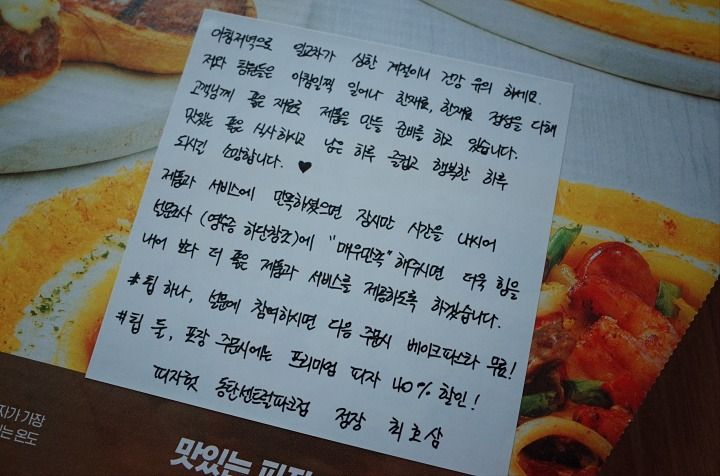 아침저녁으로 일교차가 심한 계절이니 건강 유의 하세요.
저와 팀원들은 아침일찍 일어나 한재료, 한재료 정성을 다해
고객님께 좋은 재료로 제품을 만들 준비를 하고 있습니다.
맛있는 좋은 식사하시고 남은 하루 즐겁고 행복한 하루
되시길 소망합니다. ♥
제품과 서비스에 만족하셨으면 잠시만 시간을 내시어
설문조사 (영수증 하단참조)에 "매우만족" 해주시면 더욱 힘을
내어 보다 더 좋은 제품과 서비스를 제공하도록 하겠습니다.
#팁 하나, 설문에 참여하시면 다음 주문시 베이크파스타 무료!
#팁 둘, 포장 주문시에는 프리미엄 피자 40% 할인!
피자헛 동탄센트럴파크점 점장 최호삼
자가 가장
는 온도
맛있는 피자